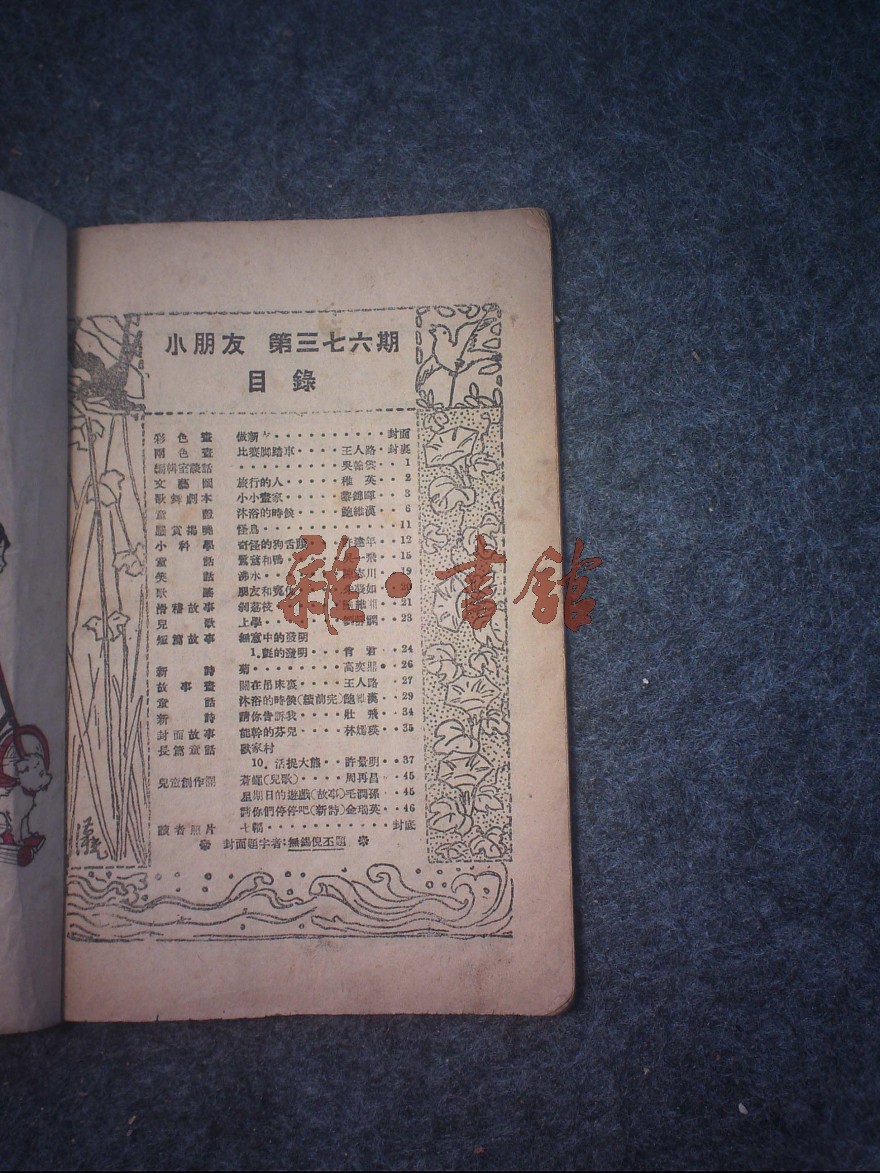 小朋友 第三七六期
目錄
彩色畫 做新 封面
兩色畫 比賽脚踏車 王人路 封裏
編輯室談話 吳翰雲 1
文藝圖 旅行的人 稚英 2
歌舞劇本 小小畫家 黎錦暉 3
童話 沐浴的時候 鮑維湘 6
懸賞揭曉 怪鳥 11
小科學 奇怪的狗舌頭 許達年 12
童話 鵞和鴨 一飛 15
笑話 沸水 志川 19
歌謠 朋友和 如 20
滑稽故事 剝荔枝 21
兒歌 上學 23
短篇故事 無意中的發明
1. 的發明 肯君 24
新詩 菊 高奕鼎 26
故事畫 關在吊床裏 王人路 27
童話 沐浴的時候(續前完) 鮑維湘 29
新詩 請你告訴我 壯飛 34
封面故事 能幹的芬兒 林嬀英 35
長篇童話 獸家村
10. 活捉大熊 許景明 37
兒童創作欄 蒼蠅(兒歌) 周再昌 45
星期日的遊戲(故事) 毛潤孫 45
請你們停停吧(新詩) 金瑞英 46
讀者照片 七幅 封底
封面題字者:無錫倪丕題
雜·書館